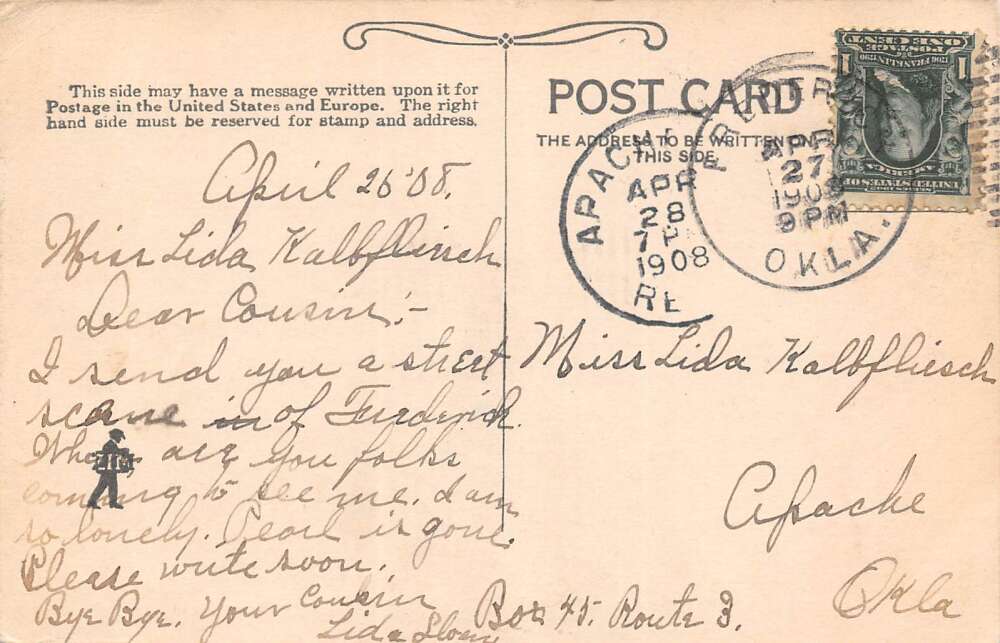 This side may have a message written upon it for
Postage in the United States and Europe. The right
hand side must be reserved for stamp and address.
POST CARD
THE ADDRESS TO BE WRITTEN ON
THIS SIDE.
APACHE
APR
28
7 P
1908
RE
FREDER
APR
27
1908
9 PM
OKLA.
POSTAGE
ONE CENT
1
1
1706 FRANKLIN 1790
UNITED STATES OF
AMERICA
April 26'08.
Miss Lida Kalbfliesch
Dear Cousin;-
I send you a street
scene in of Frederick.
When are you folks
coming to see me. I am
so lonely. Pearl is gone.
Please write soon.
Bye Bye. Your Cousin
Lida
Miss Lida Kalbfliesch
Apache
Okla
Box 45. Route 3.